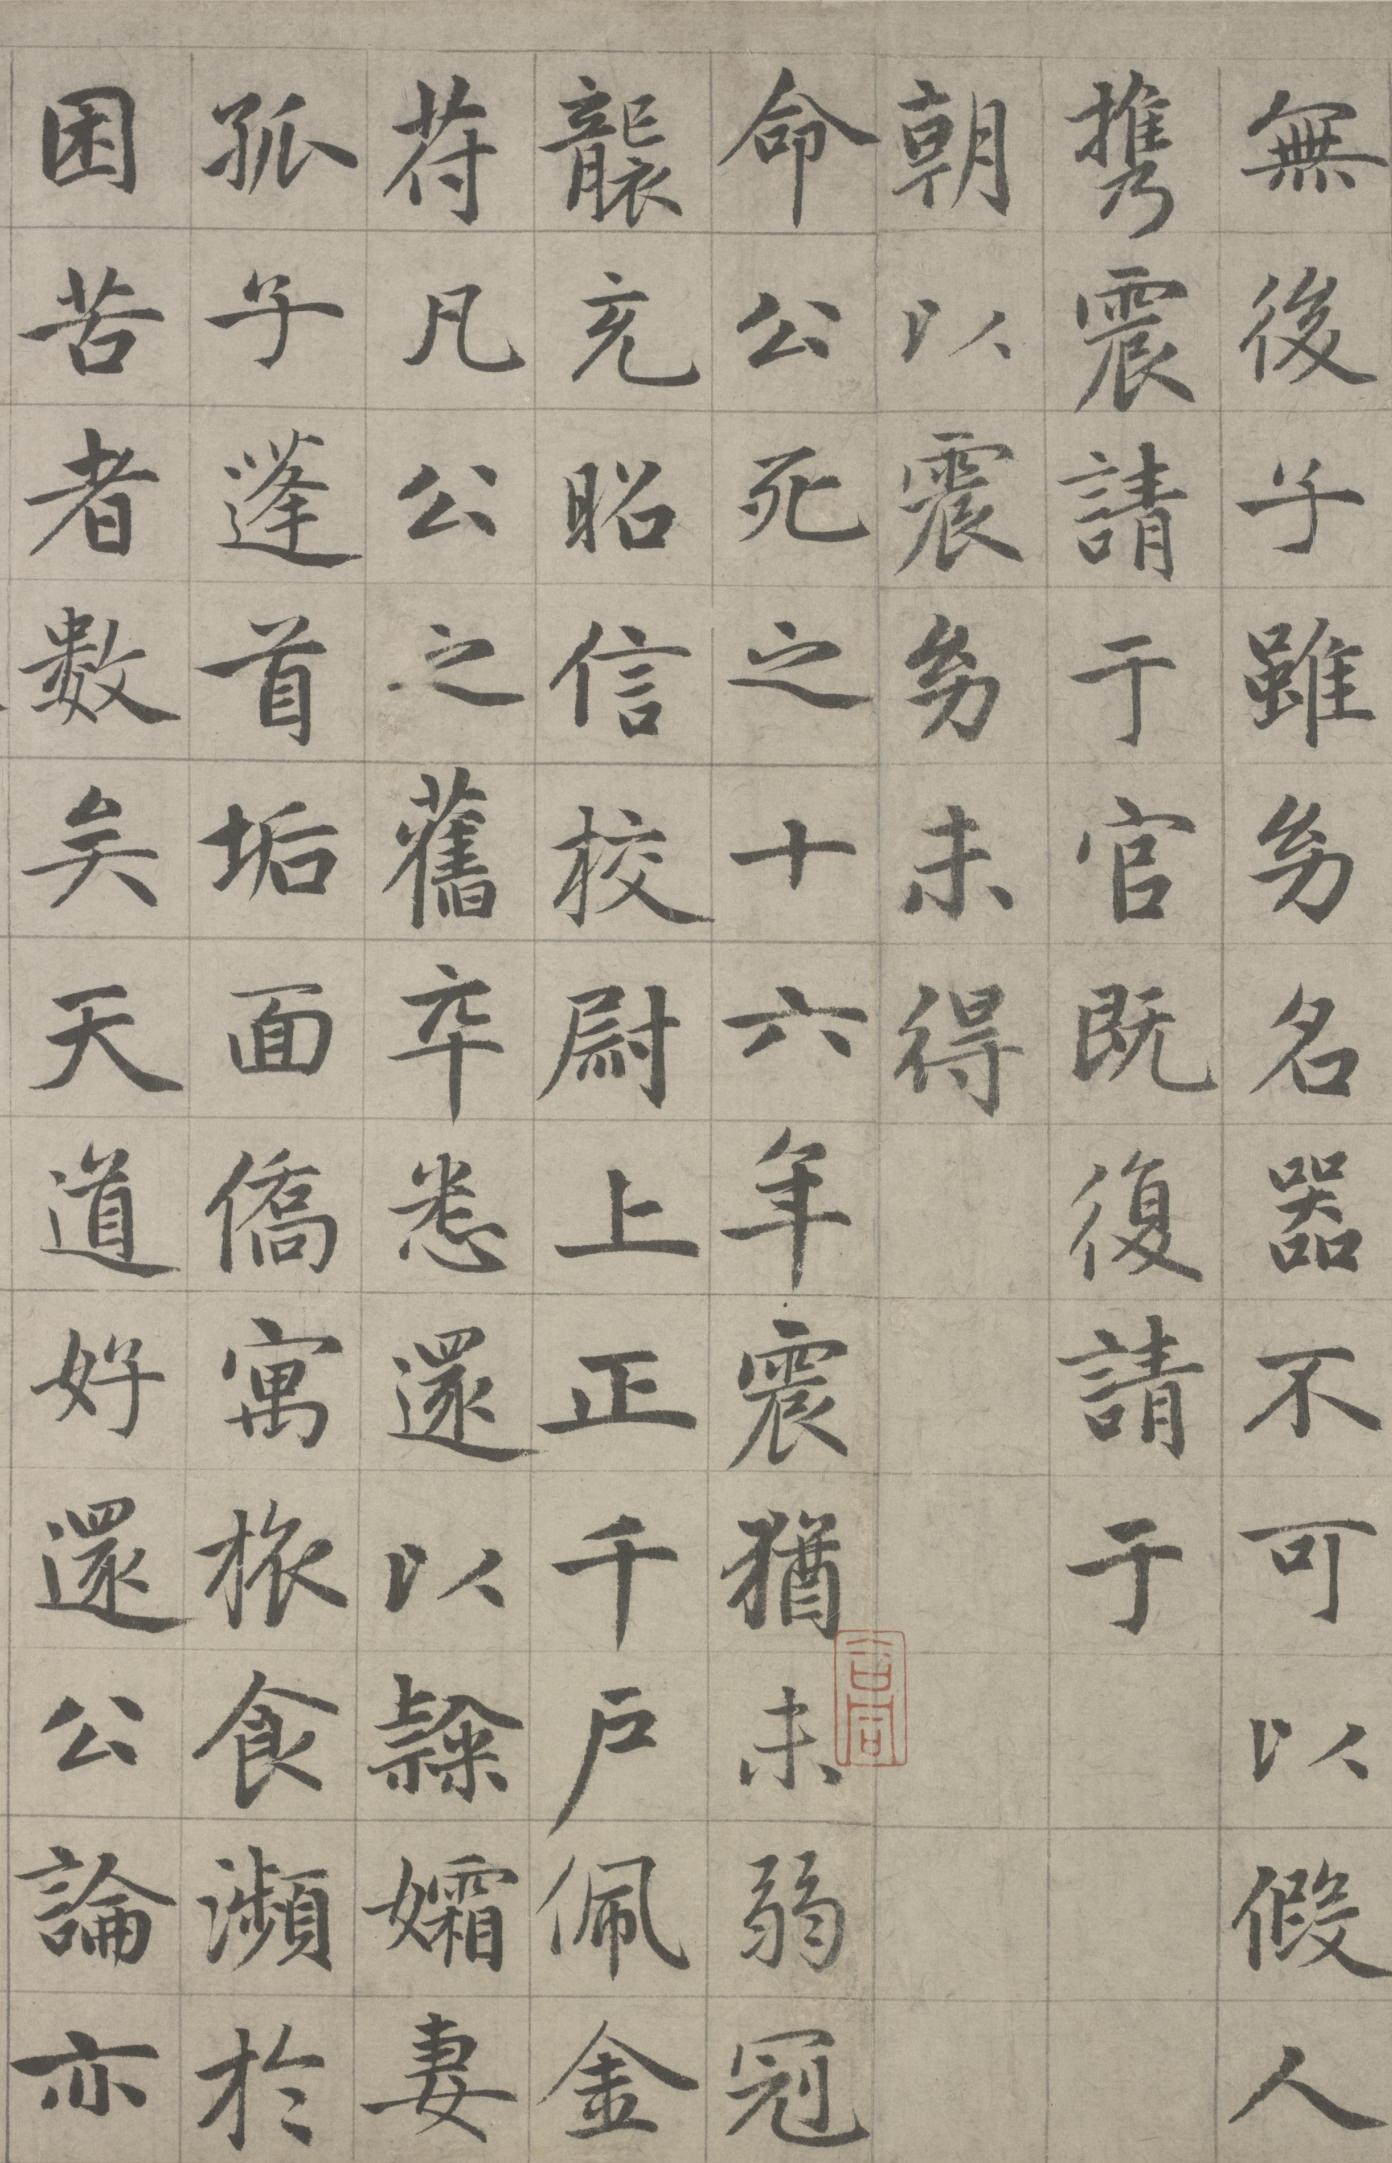 無後子雖㓜名器不可以假人
携震請于官既復請于
朝以震㓜未得
命公死之十六年震猶未弱冠
襲充昭信校尉上正千户佩金
苻凡公之舊卒悉還以隸孀妻
孤子蓬首垢面僑寓旅食瀕於
困苦者数矣天道好還公論亦